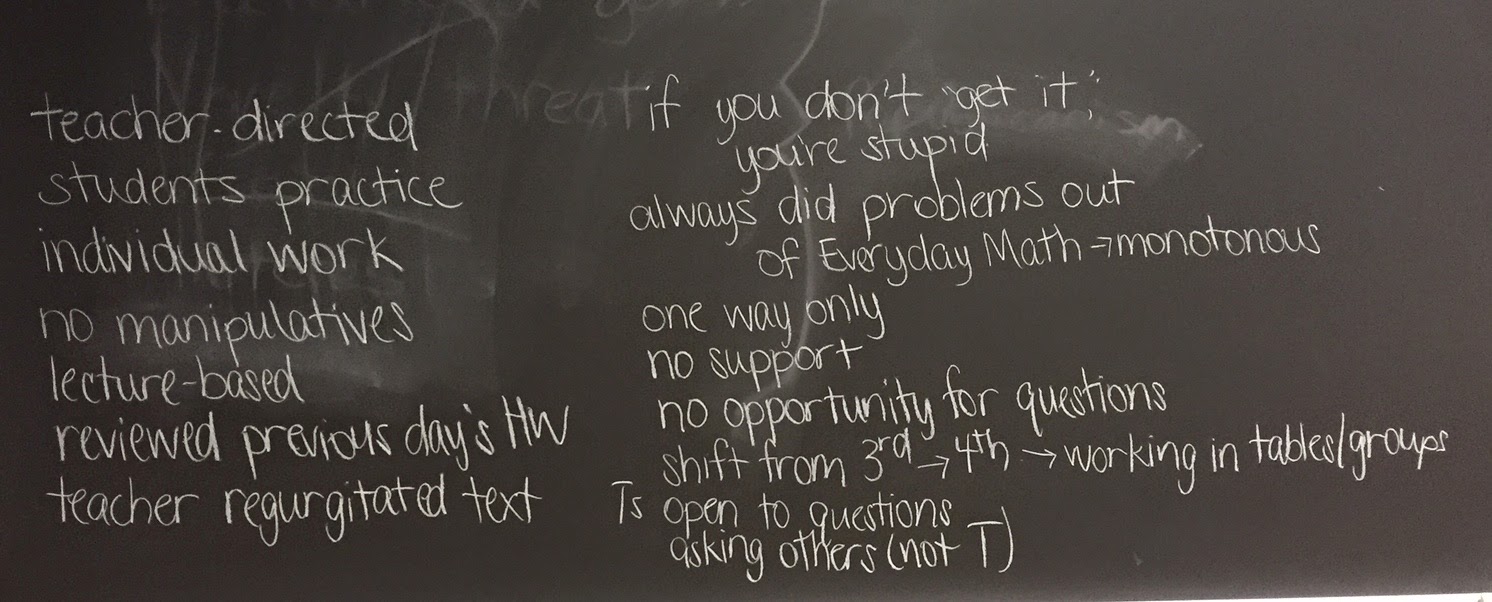 threat
teacher-directed
students practice
individual work
no manipulatives
lecture-based
reviewed previous day's HW
teacher regurgitated text
if you don't "get it,"
you're stupid
always did problems out
of Everyday Math → monotonous
one way only
no support
no opportunity for questions
shift from 3rd → 4th → working in tables/groups
Ts open to questions
asking others (not T)